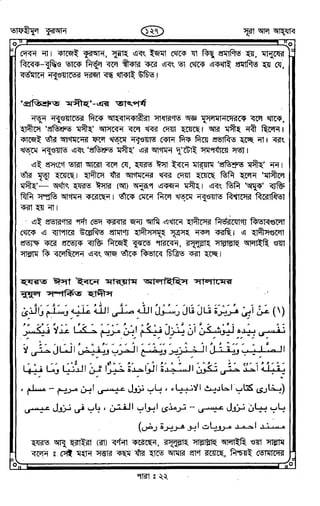 তাফহীমুল কুরআন
১২৭
সূরা আল আহযাব
দেবেন না। কাজেই কুরআন, সুন্নাহ এবং ইজমা থেকে যা কিছু প্রমাণিত হয়, মানুষের
বিবেক-বুদ্ধিও তাকে নির্ভুল বলে স্বীকার করে এবং তা থেকে একথাই প্রমাণিত হয় যে,
বর্তমানে নবুওয়াতের দরজা বন্ধ থাকাই উচিত।
'প্রতিশ্রুত মসীহ'-এর তাৎপর্য
নতুন নবুওয়াতের দিকে আহবানকারীরা সাধারণত অজ্ঞ মুসলমানদেরকে বলে থাকে,
হাদীসে 'প্রতিশ্রুত মসীহ' আসবেন বলে খবর দেয়া হয়েছে। আর মসীহ নবী ছিলেন।
কাজেই তাঁর আগমনের ফলে খতমে নবুওয়াত কোন দিক দিয়ে প্রভাবিত হচ্ছে না। বরং
খতমে নবুওয়াত এবং 'প্রতিশ্রুত মসীহ' এর আগমন দু'টোই সমপর্যায়ে সত্য।
এই প্রসংগে তারা আরো বলে যে, হযরত ঈসা ইবনে মারয়াম 'প্রতিশ্রুত মসীহ' নন।
তাঁর মৃত্যু হয়েছে। হাদীসে যাঁর আগমনের খবর দেয়া হয়েছে তিনি হলেন 'মাসীলে
মসীহ'— অর্থাৎ হযরত ঈসার (আ) অনুরূপ একজন মসীহ। এবং তিনি 'অমুক' ব্যক্তি
যিনি সম্প্রতি আগমন করেছেন। তাঁকে মেনে নিলে খতমে নবুওয়াত বিশ্বাসের বিরোধিতা
করা হয় না।
এই প্রতারণার পর্দা ভেদ করবার জন্য আমি এখানে হাদীসের নির্ভরযোগ্য কিতাবগুলো
থেকে এ ব্যাপারে উল্লেখিত প্রামাণ্য হাদীসসমূহ সূত্রসহ নকল করছি। এ হাদীসগুলো
প্রত্যক্ষ করে প্রত্যেক ব্যক্তি নিজেই বুঝতে পারবেন, রসূলুল্লাহ সাল্লাল্লাহু আলাইহি ওয়া
সাল্লাম কি বলেছিলেন এবং আজ তাঁকে কিভাবে চিত্রিত করা হচ্ছে।
হযরত ঈসা ইবনে মারয়াম আলাইহিস সালামের
নুযুল সম্পর্কিত হাদীস
(١) عَنْ أَبِي هُرَيْرَةَ قَالَ قَالَ رَسُولُ اللهِ صَلَّى اللهُ عَلَيْهِ وَسَلَّمَ وَالَّذِي
نَفْسِي بِيَدِهِ لَيُوشِكَنَّ أَنْ يَنْزِلَ فِيكُمْ ابْنُ مَرْيَمَ حَكَمًا عَدْلًا فَيَكْسِرَ
الصَّلِيبَ وَيَقْتُلَ الْخِنْزِيرَ وَيَضَعَ الْحَرْبَ وَيَفِيضَ الْمَالُ حَتَّى لَا
يَقْبَلَهُ أَحَدٌ حَتَّى تَكُونَ السَّجْدَةُ الْوَاحِدَةُ خَيْرًا مِّنَ الدُّنْيَا وَمَا فِيهَا
(بخارى كتاب احاديث الانبياء، باب نزول عيسى ابن مريم - مسلم،
باب بيان نزول عيسى - ترمذى ابواب الفتن، باب فى نزول عيسى
مسند احمد مرويات ابو هريرة رض)
হযরত আবু হুরাইরা (রা) বর্ণনা করেছেন, রসূলুল্লাহ সাল্লাল্লাহু আলাইহি ওয়া সাল্লাম
বলেন : সেই মহান সত্তার কছম যাঁর হাতে আমার প্রাণ রয়েছে, নিশ্চয়ই তোমাদের
পারা : ২২